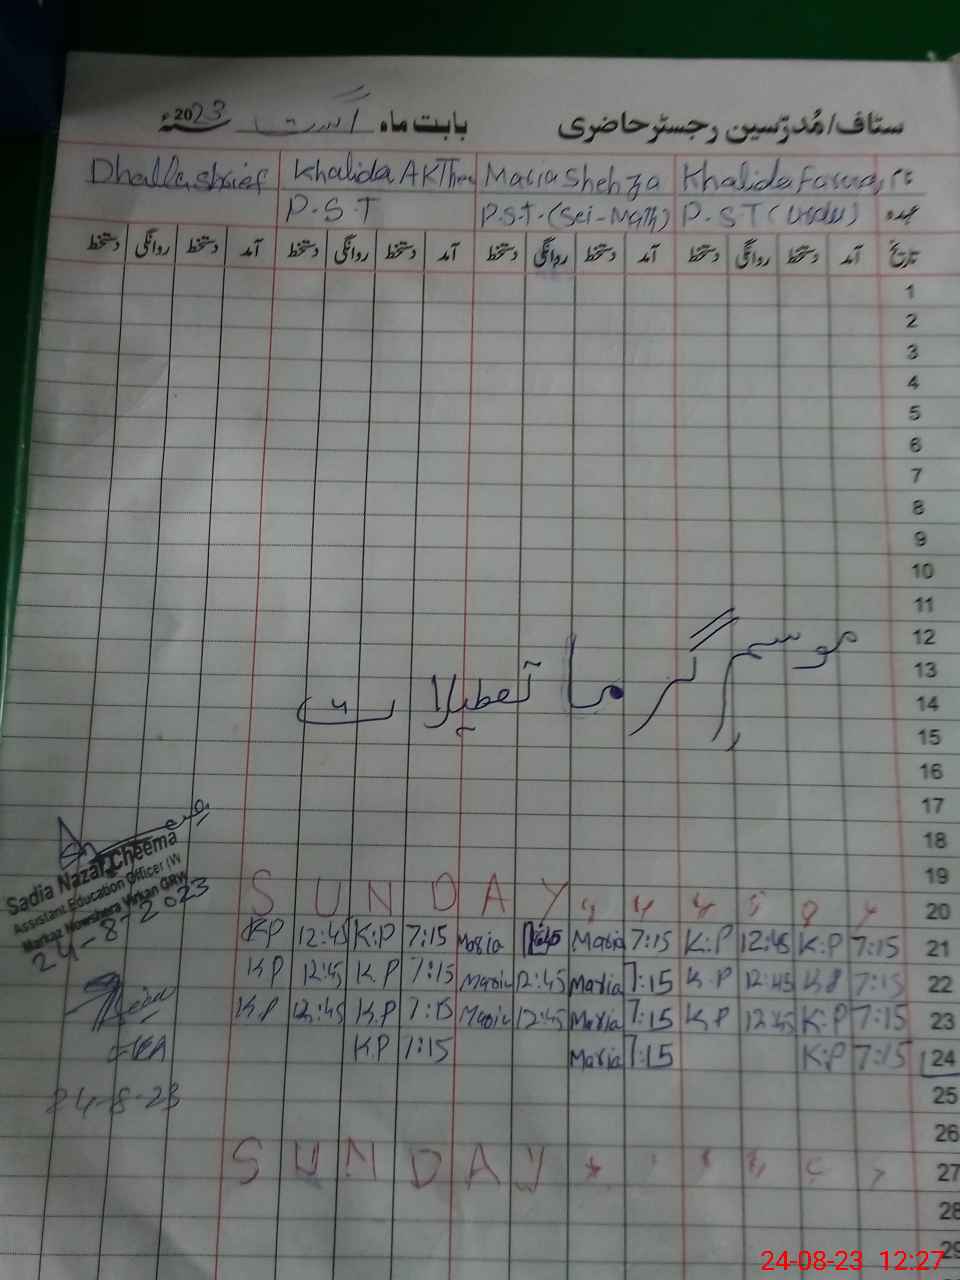 ستاف/مُدرّسین رجسٹر حاضری بابت ماہ اگست 2023ء
نام Khalida Farooq Maria Shehza Khalida AKTher Dhalla shrief
عہدہ P.S.T (Urdu) P.S.T.(Sci-Math) P.S.T
تاریخ آمد دستخط روانگی دستخط آمد دستخط روانگی دستخط آمد دستخط روانگی دستخط آمد دستخط روانگی دستخط
1
2
3
4
5
6
7
8
9
10
11
12
موسم گرما تعطیلات
13
14
15
16
17
18
19
Sadia Nazar Cheema
Assistant Education Officer (W
Markaz Nowshera Virkan GRW
24-8-2023
SUNDAY 20
KP 12:45 K:P 7:15 Maria 12:45 Maria 7:15 K:P 12:45 K:P 7:15 21
KP 12:45 K.P 7:15 Maria 12:45 Maria 7:15 K.P 12:45 KP 7:15 22
K.P 12:45 K.P 7:15 Maria 12:45 Maria 7:15 KP 12:45 K:P 7:15 23
K.P 7:15 Maria 7:15 K:P 7:15 24
24-8-23
25
26
SUNDAY 27
28
29
24-08-23 12:27